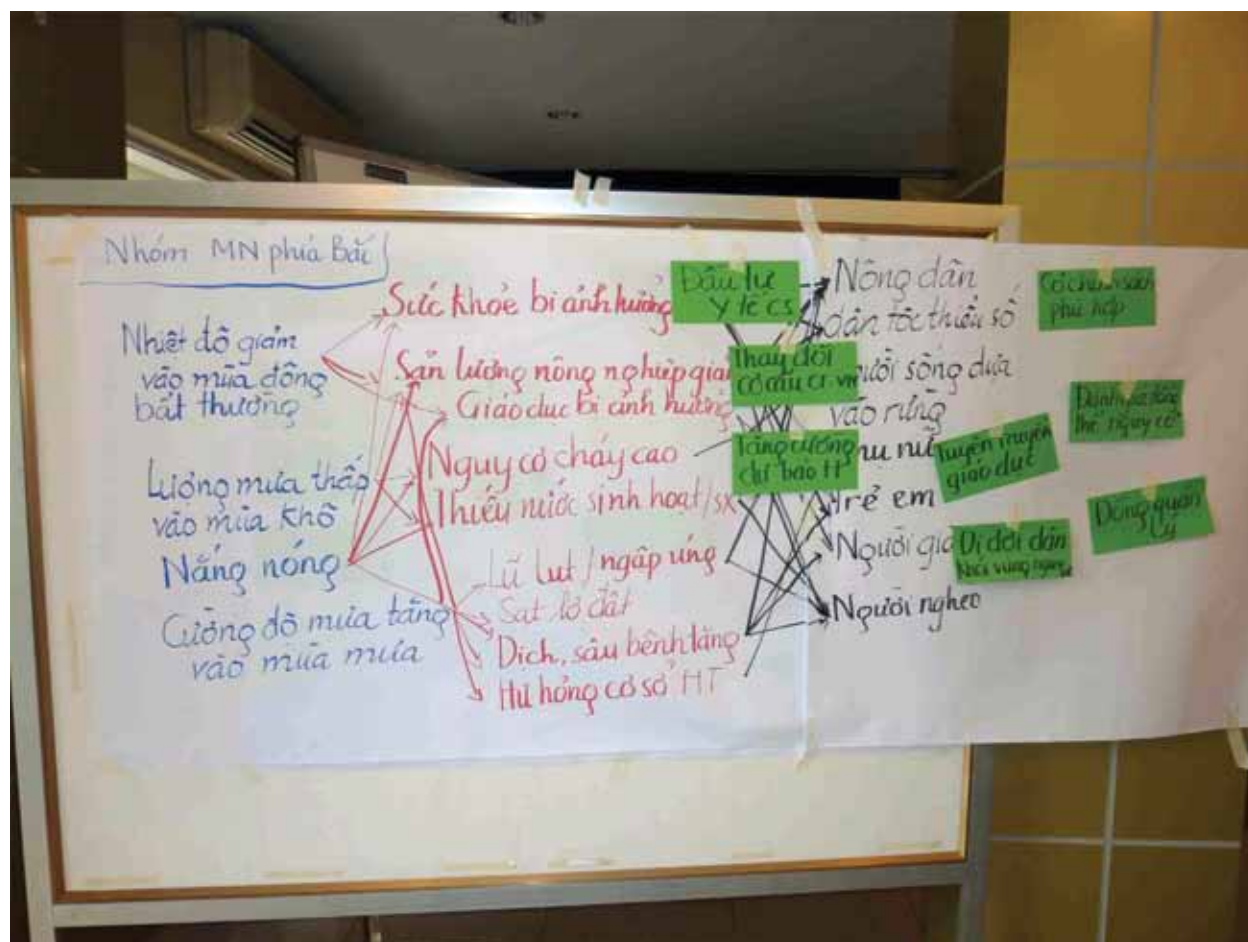 Nhóm MN phía Bắc
Nhiệt độ giảm
vào mùa đông
bất thường
Lượng mưa thấp
vào mùa khô
Nắng nóng
Cường độ mưa tăng
vào mùa mưa
Sức khỏe bị ảnh hưởng
Sản lượng nông nghiệp giả
Giáo dục bị ảnh hưởng
Nguy cơ cháy cao
Thiếu nước sinh hoạt/sx
Lũ lụt/ngập úng
Sạt lở đất
Dịch, sâu bệnh tăng
Hư hỏng cơ sở HT
Đầu tư
y tế cs
Thay đổi
cơ cấu
Tăng cường
dự báo
Nông dân
dân tộc thiểu số
sống dựa
vào rừng
nữ
Trẻ em
Người già
Người nghèo
Tuyên truyền
giáo dục
Di dời dân
khỏi vùng
Có chính sách
phù hợp
Đánh giá
nguy cơ
Đồng quản
lý